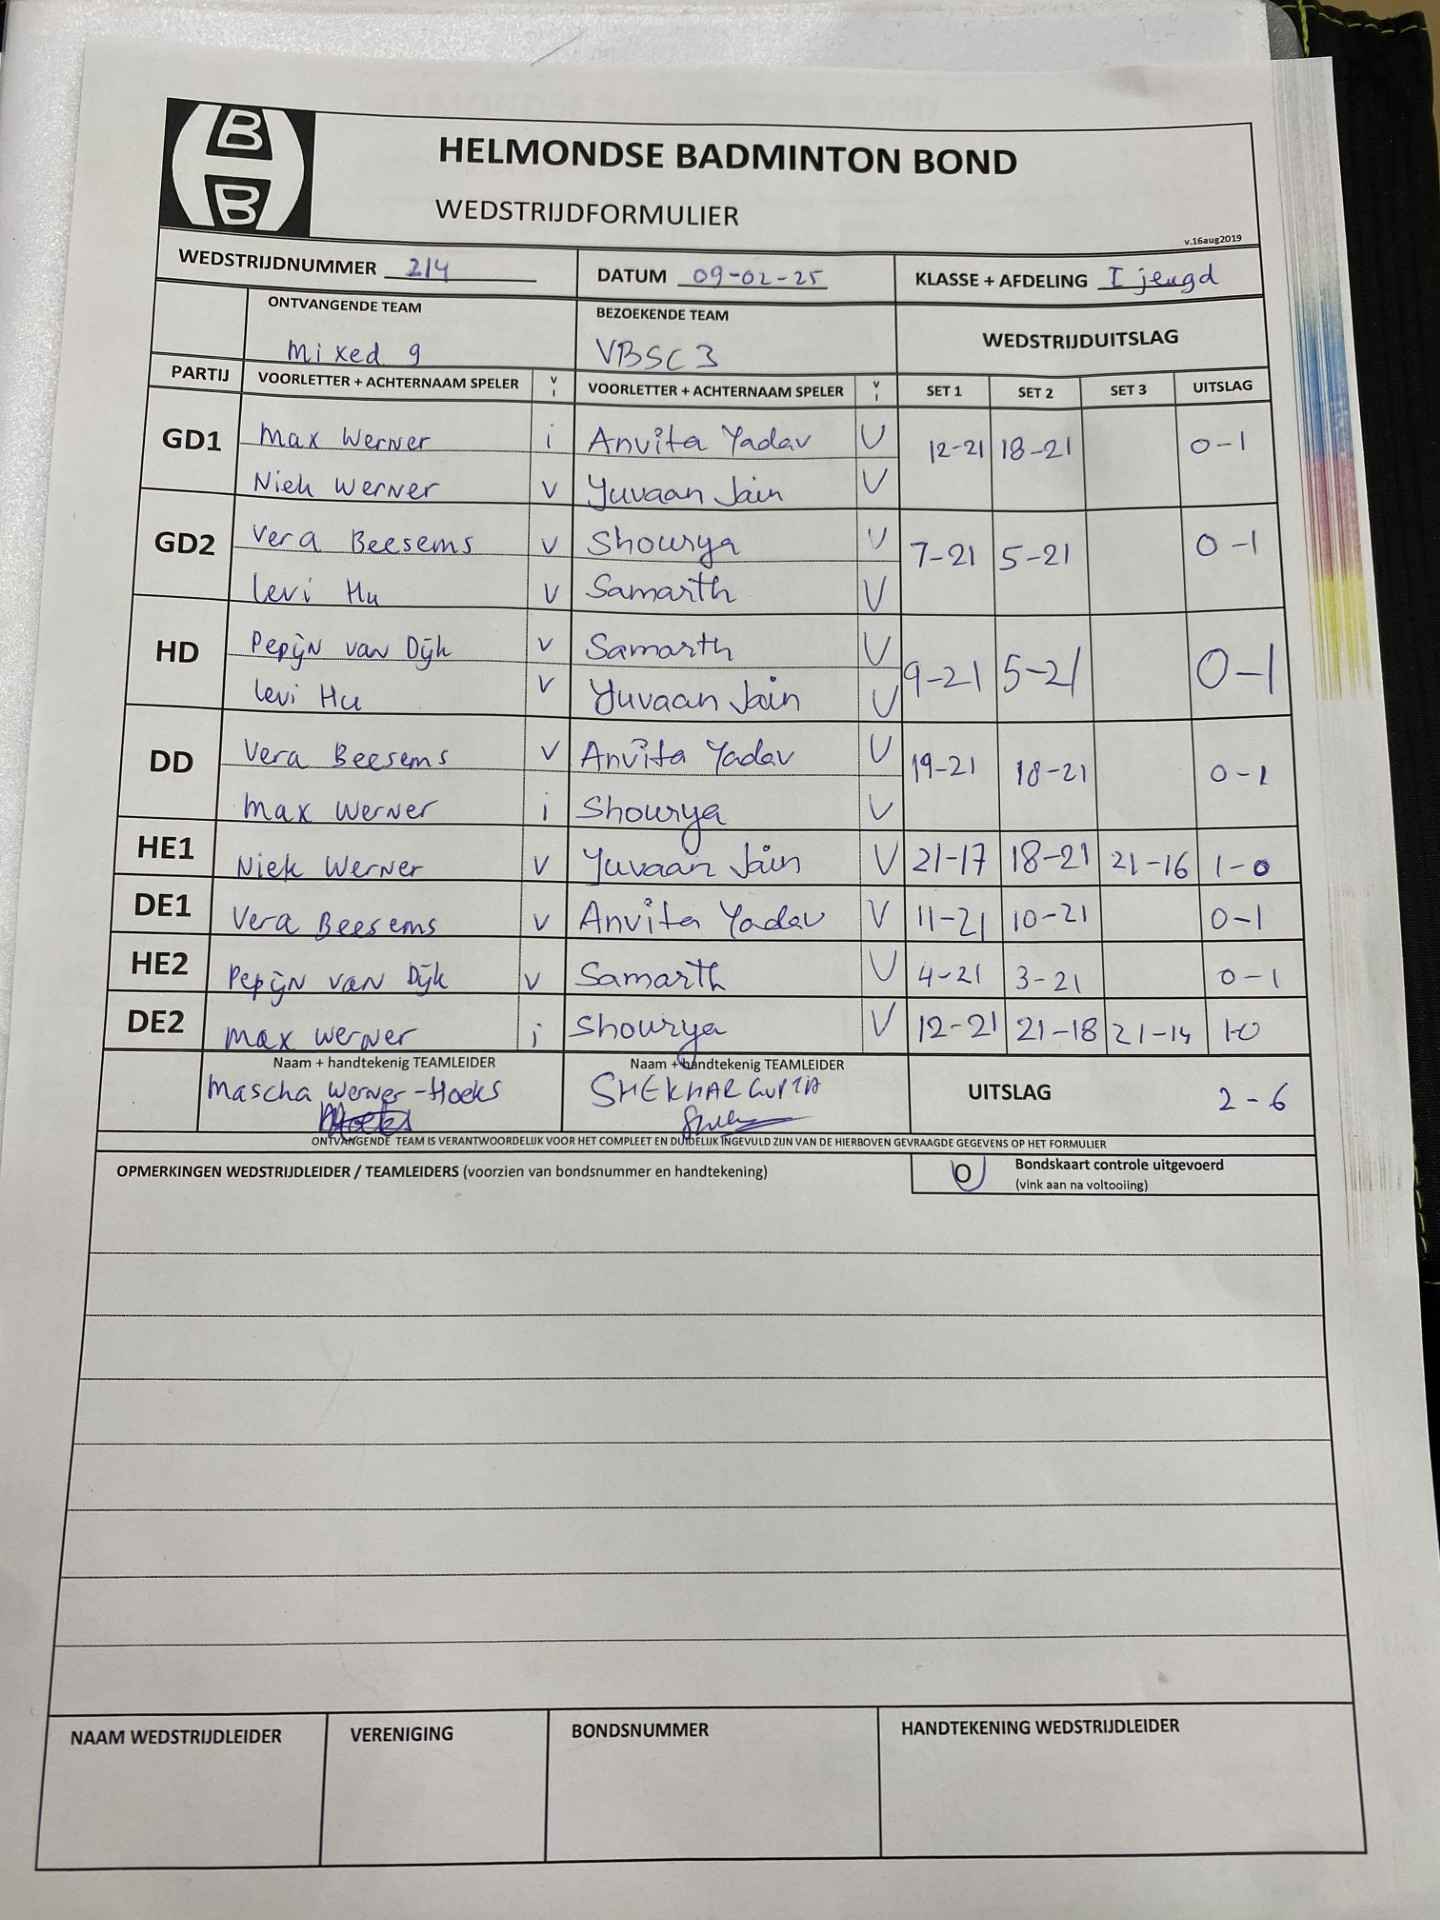 B
B
HELMONDSE BADMINTON BOND
WEDSTRIJDFORMULIER
v.16aug2019
WEDSTRIJDNUMMER 214 DATUM 09-02-25 KLASSE + AFDELING I jeugd
ONTVANGENDE TEAM BEZOEKENDE TEAM WEDSTRIJDUITSLAG
Mixed 9 VBSC 3
PARTIJ VOORLETTER + ACHTERNAAM SPELER V I VOORLETTER + ACHTERNAAM SPELER V I SET 1 SET 2 SET 3 UITSLAG
GD1 Max Werner i Anvita Yadav V 12-21 18-21 0-1
Niek Werner V Yuvaan Jain V
GD2 Vera Beesems V Shourya V 7-21 5-21 0-1
Levi Hu V Samarth V
HD Pepijn van Dijk V Samarth V 9-21 5-21 0-1
Levi Hu V Yuvaan Jain V
DD Vera Beesems V Anvita Yadav V 19-21 18-21 0-1
Max Werner i Shourya V
HE1 Niek Werner V Yuvaan Jain V 21-17 18-21 21-16 1-0
DE1 Vera Beesems V Anvita Yadav V 11-21 10-21 0-1
HE2 Pepijn van Dijk V Samarth V 4-21 3-21 0-1
DE2 Max Werner i Shourya V 12-21 21-18 21-14 1-0
Naam + handtekenig TEAMLEIDER Naam + handtekenig TEAMLEIDER UITSLAG 2-6
Mascha Werner-Hoeks SHEKHAR GUPTA
ONTVANGENDE TEAM IS VERANTWOORDELIJK VOOR HET COMPLEET EN DUIDELIJK INGEVULD ZIJN VAN DE HIERBOVEN GEVRAAGDE GEGEVENS OP HET FORMULIER
OPMERKINGEN WEDSTRIJDLEIDER / TEAMLEIDERS (voorzien van bondsnummer en handtekening) O Bondskaart controle uitgevoerd
(vink aan na voltooiing)
NAAM WEDSTRIJDLEIDER VERENIGING BONDSNUMMER HANDTEKENING WEDSTRIJDLEIDER